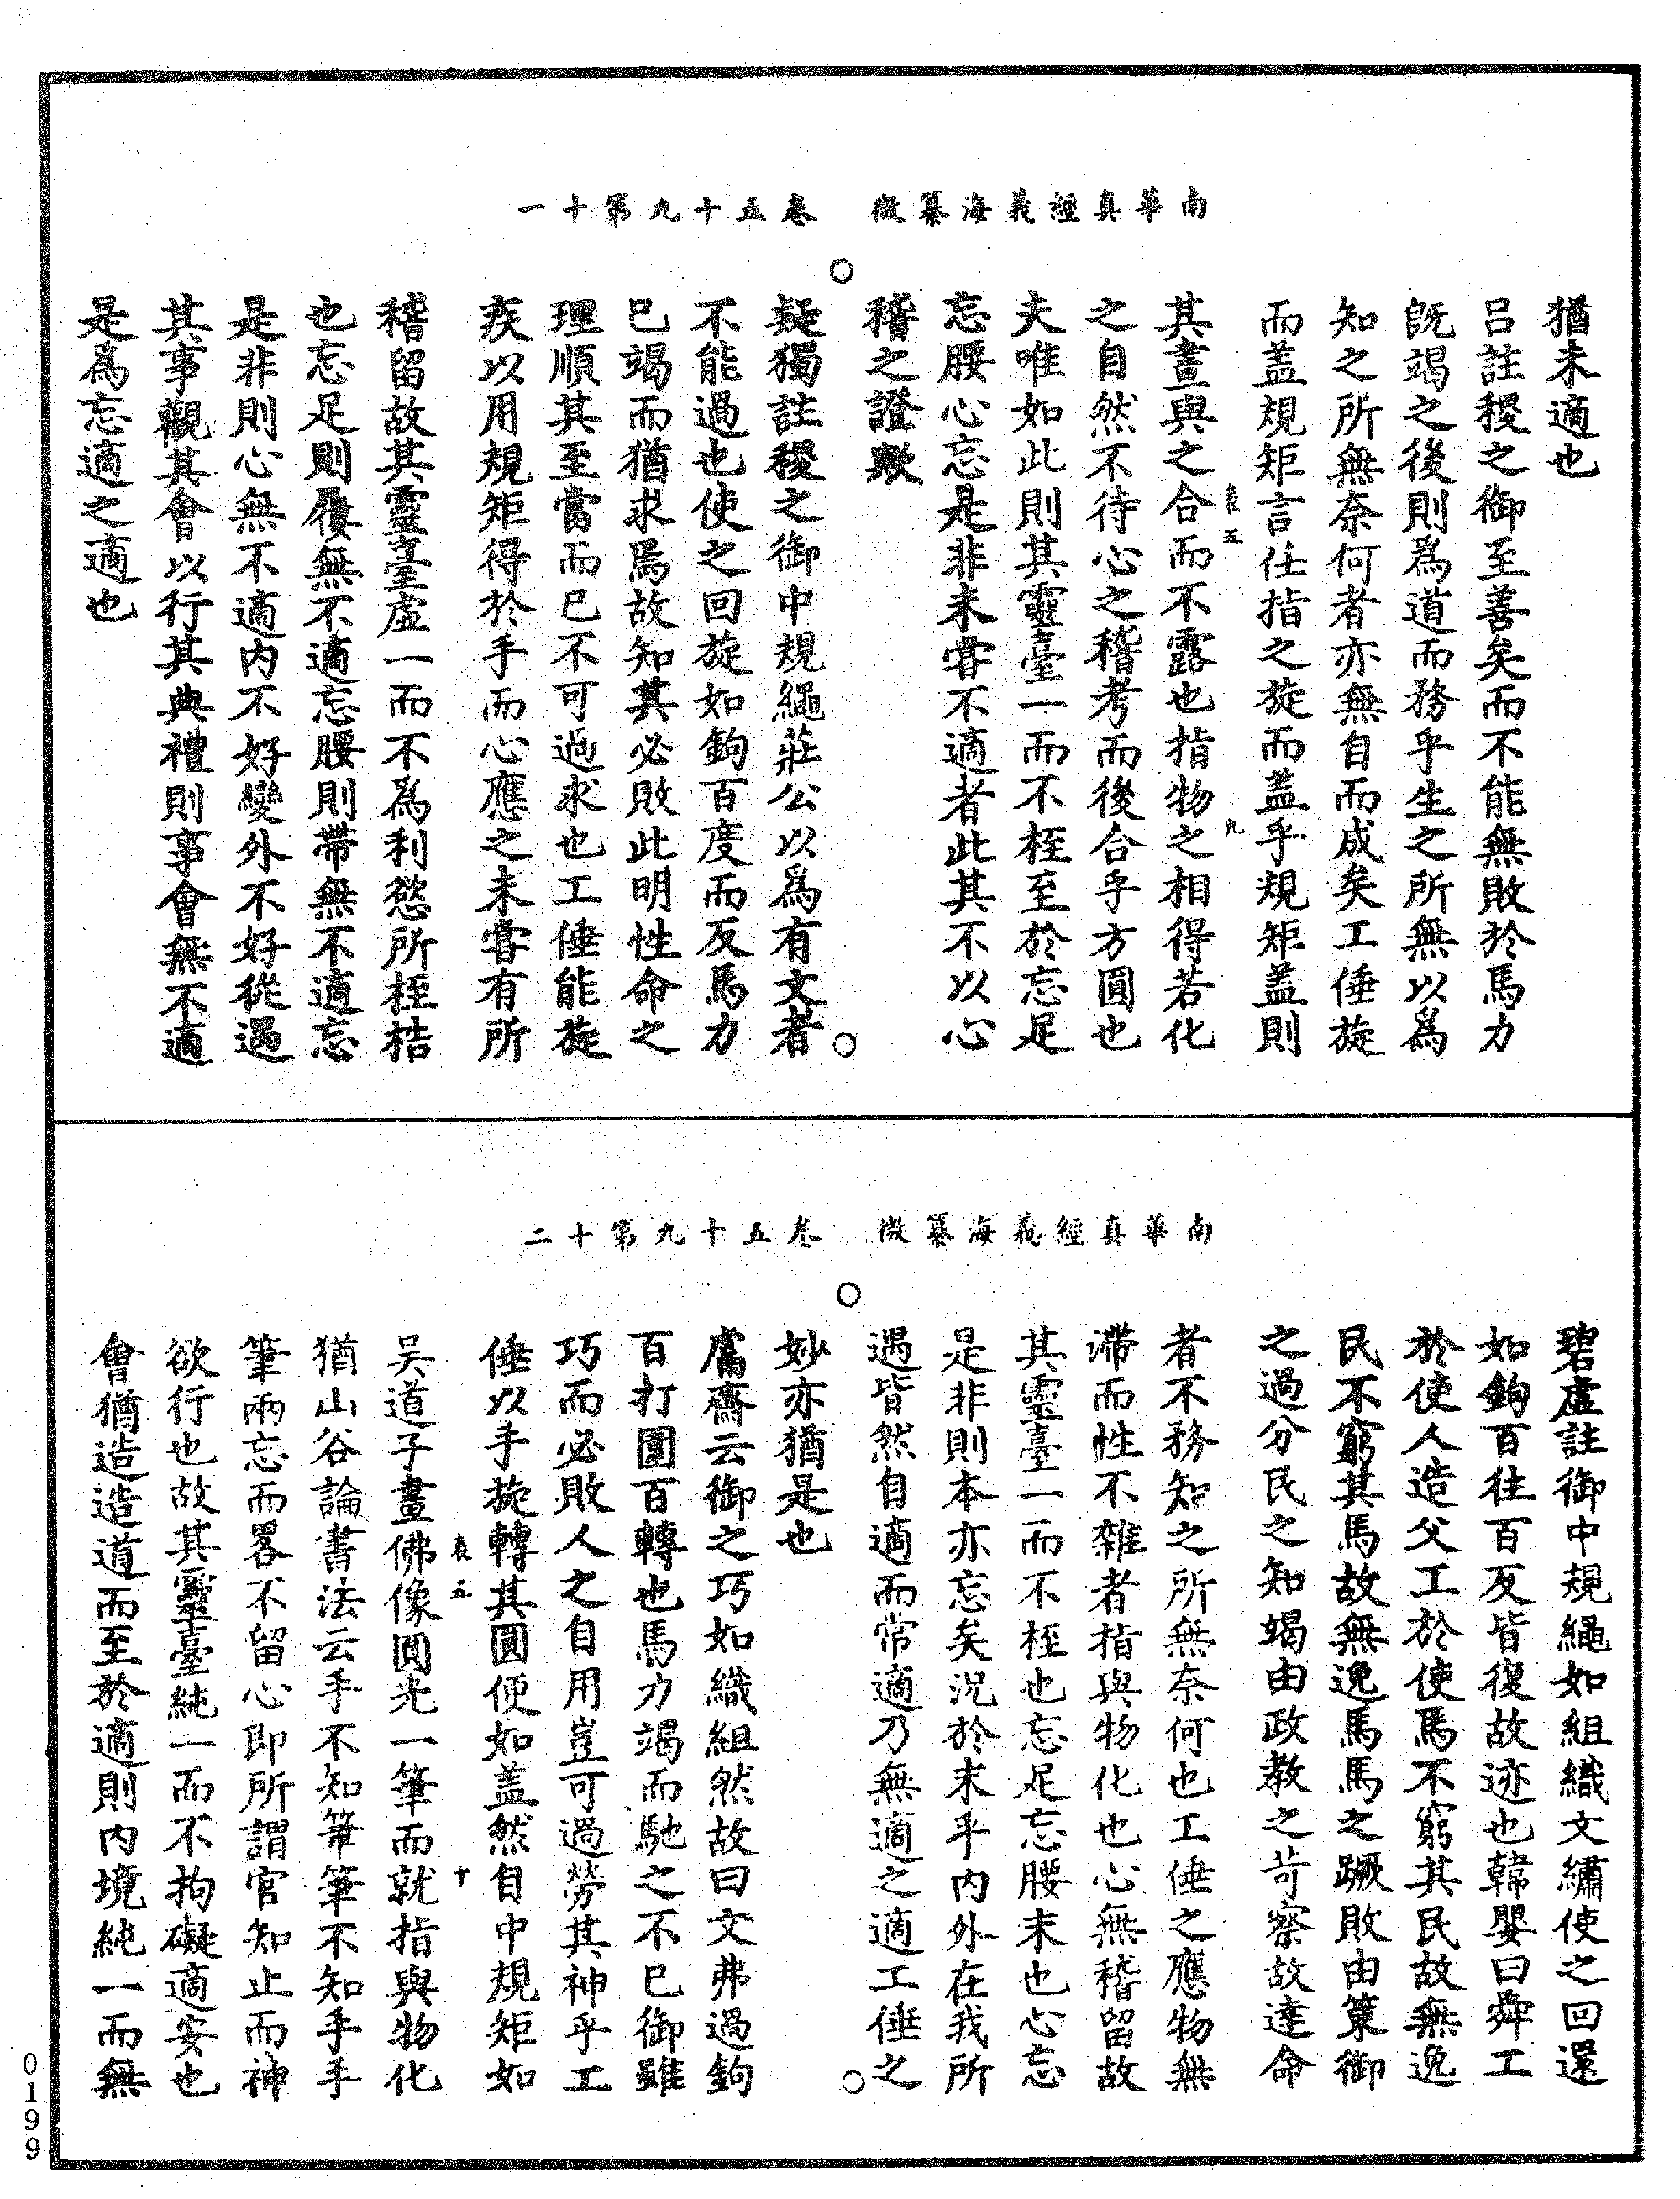 南華真經義海纂微　卷五十九第十一
猶未適也
呂註稷之御至善矣而不能無敗於馬力
旣竭之後則爲道而務乎生之所無以爲
知之所無奈何者亦無自而成矣工倕旋
而盖規矩言任指之旋而盖乎規矩盖則
袁五　九
其畫與之合而不露也指物之相得若化
之自然不待心之稽考而後合乎方圓也
夫唯如此則其靈臺一而不桎至於忘足
忘腰心忘是非未甞不適者此其不以心
稽之證歟
疑獨註稷之御中規繩莊公以爲有文者
不能過也使之回旋如鉤百度而反馬力
已竭而猶求焉故知其必敗此明性命之
理順其至當而已不可過求也工倕能旋
疾以用規矩得於手而心應之未甞有所
稽留故其靈臺虛一而不爲利慾所桎梏
也忘足則屨無不適忘腰則帶無不適忘
是非則心無不適內不好變外不好從遇
其事觀其會以行其典禮則事會無不適
是爲忘適之適也
南華真經義海纂微　卷五十九第十二
碧虛註御中規繩如組織文繡使之回還
如鉤百往百反皆復故迹也韓嬰曰舜工
於使人造父工於使馬不窮其民故無逸
民不窮其馬故無逸馬馬之蹶敗由策御
之過分民之知竭由政教之苛察故達命
者不務知之所無奈何也工倕之應物無
滯而性不雜者指與物化也心無稽留故
其靈臺一而不桎也忘足忘腰末也心忘
是非則本亦忘矣況於末乎內外在我所
遇皆然自適而常適乃無適之適工倕之
妙亦猶是也
鬳齋云御之巧如織組然故曰文弗過鉤
百打圍百轉也馬力竭而馳之不已御雖
巧而必敗人之自用豈可過勞其神乎工
倕以手旋轉其圓便如盖然自中規矩如
袁五　十
吳道子畫佛像圓光一筆而就指與物化
猶山谷論書法云手不知筆筆不知手手
筆兩忘而畧不留心即所謂官知止而神
欲行也故其靈臺純一而不拘礙適安也
會猶造造道而至於適則內境純一而無
0199